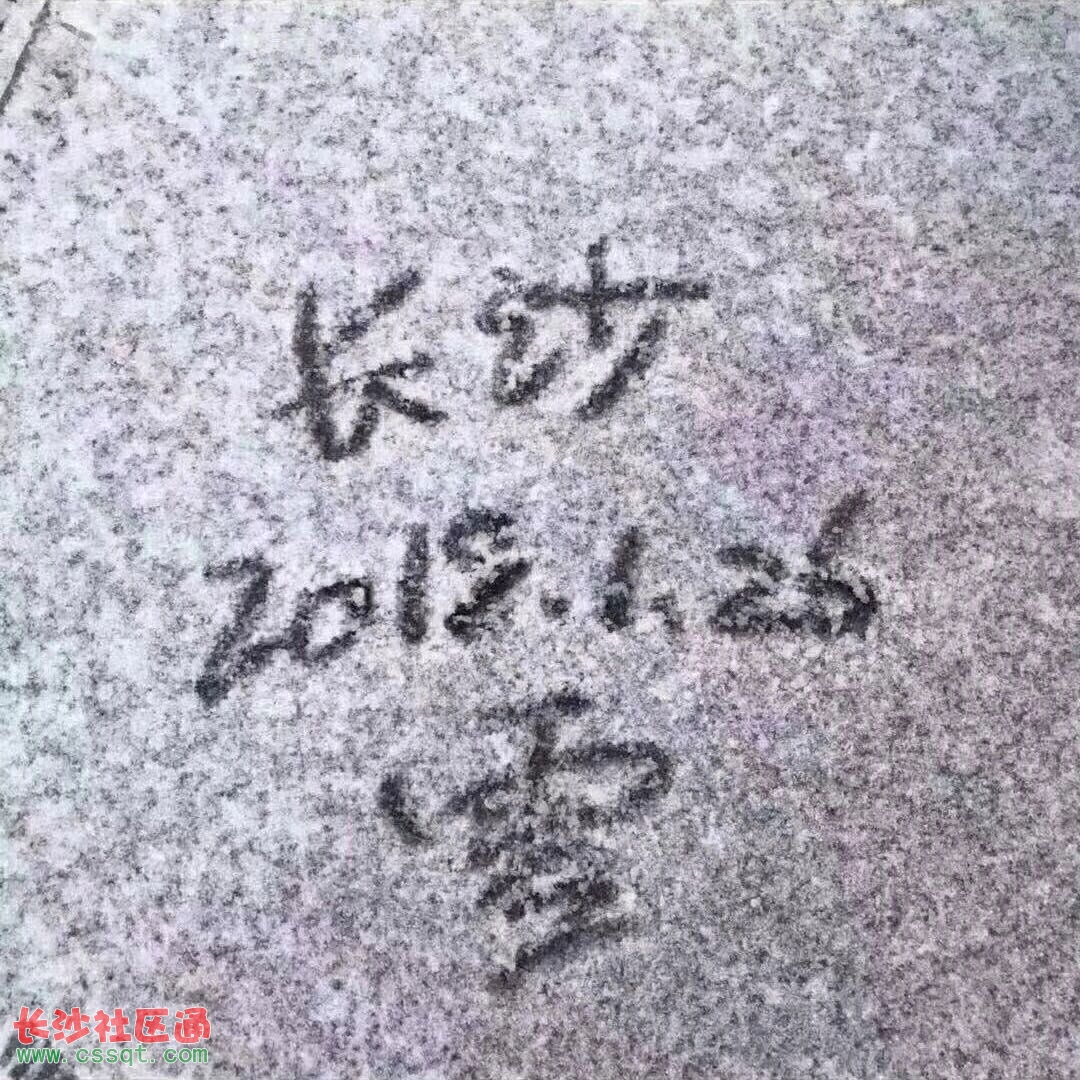 长沙
2018.1.26
雪
长沙社区通
www.cssqt.com